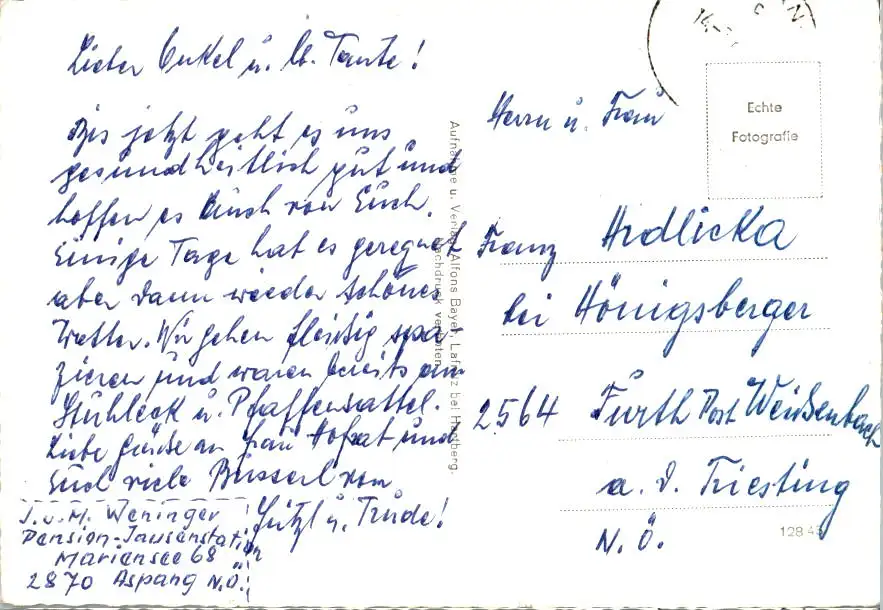 Lieber Onkel u. lb. Tante!
Bis jetzt geht es uns
gesundheitlich gut und
hoffen es auch von Euch.
Einige Tage hat es geregnet
aber dann wieder schönes
Wetter. Wir gehen fleißig spa-
zieren und waren bereits am
Stuhleck u. Pfaffensattel.
Liebe Grüße an Frau Hofrat und
Euch viele Busserl von
u. Trude!
J. u. M. Weninger
Pension-Jausenstation
Mariensee 68
2870 Aspang N.Ö.
Aufnahme u. Verlag Alfons Bayer, Lafnitz bei Hartberg.
Nachdruck verboten
14.
Echte
Fotografie
Herrn u. Frau
Franz Hrdlicka
bei Hönigsberger
2564 Furth Post Weißenbach
a. d. Triesting
N.Ö.
128 43